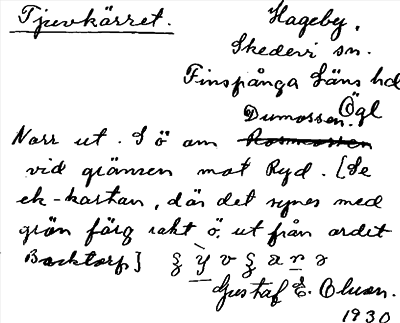 Tjuvkärret.
Hageby,
Skedevi sn.
Finspånga Läns hd
Ögl
Dumossen.
Norr ut. S ö om Rosmossen
vid gränsen mot Ryd. [Se
ek-kartan, där det synes med
grön färg rakt ö. ut från ordet
Backtorp]
Gustaf E. Olson.
1930